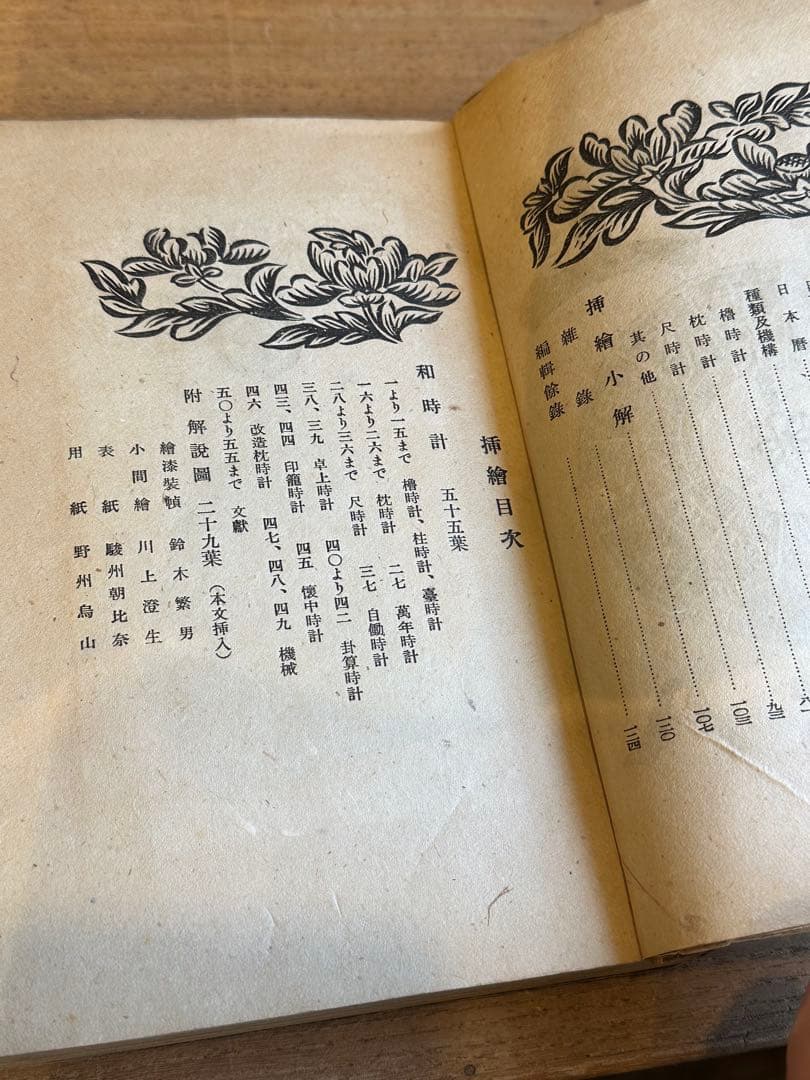 日本暦 六一
種類及機構 九三
櫓時計 一〇三
枕時計 一〇七
尺時計 一二〇
其の他 一二四
挿繪小解
雜錄
編輯餘錄
挿繪目次
和時計 五十五葉
一より一五まで 櫓時計、柱時計、臺時計
一六より二六まで 枕時計 二七 萬年時計
二八より三六まで 尺時計 三七 自働時計
三八、三九 卓上時計 四〇より四二 卦算時計
四三、四四 印籠時計 四五 懷中時計
四六 改造枕時計 四七、四八、四九 機械
五〇より五五まで 文獻
附解說圖 二十九葉(本文挿入)
繪漆裝幀 鈴木繁男
小間繪 川上澄生
表紙 駿州朝比奈
用紙 野州烏山